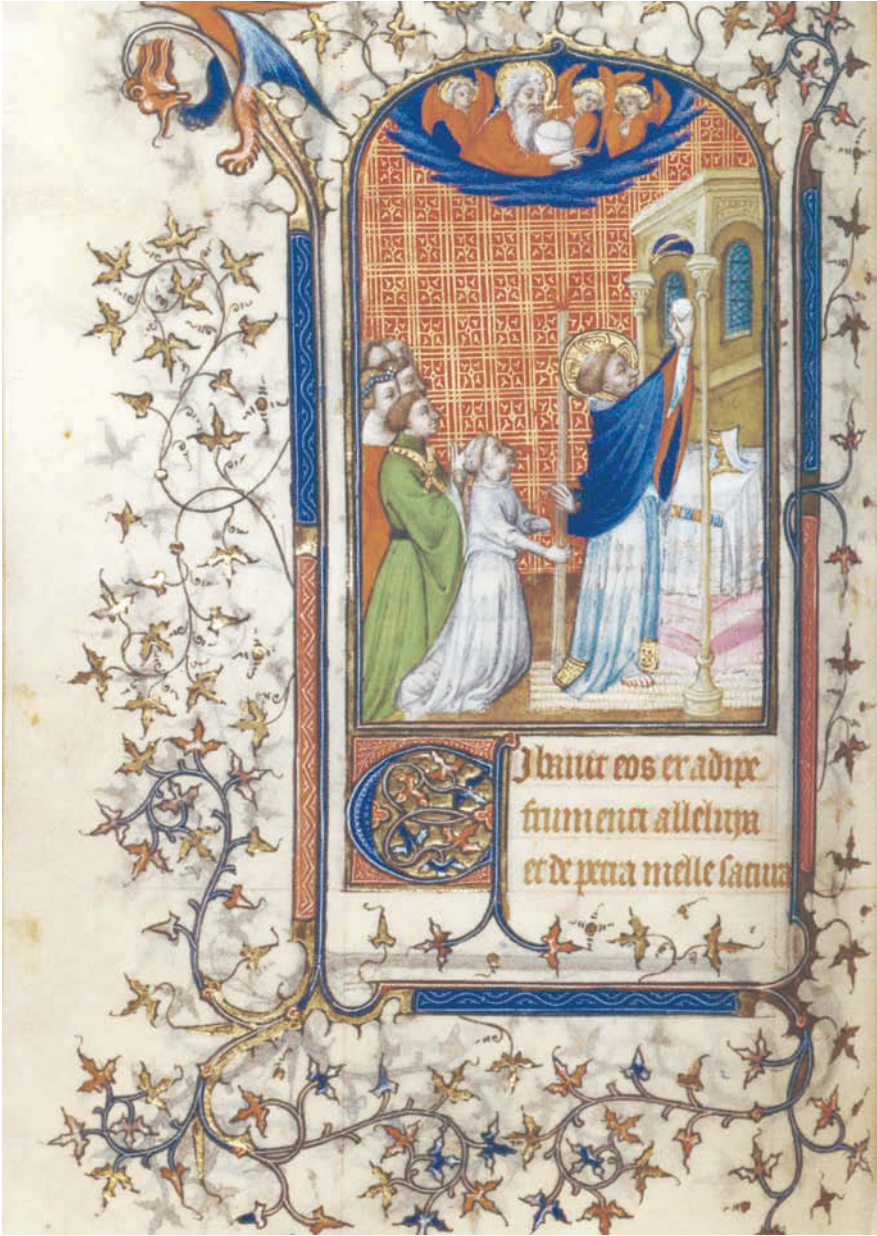 Cibavit eos ex adipe
frumenti alleluya
et de petra melle satura